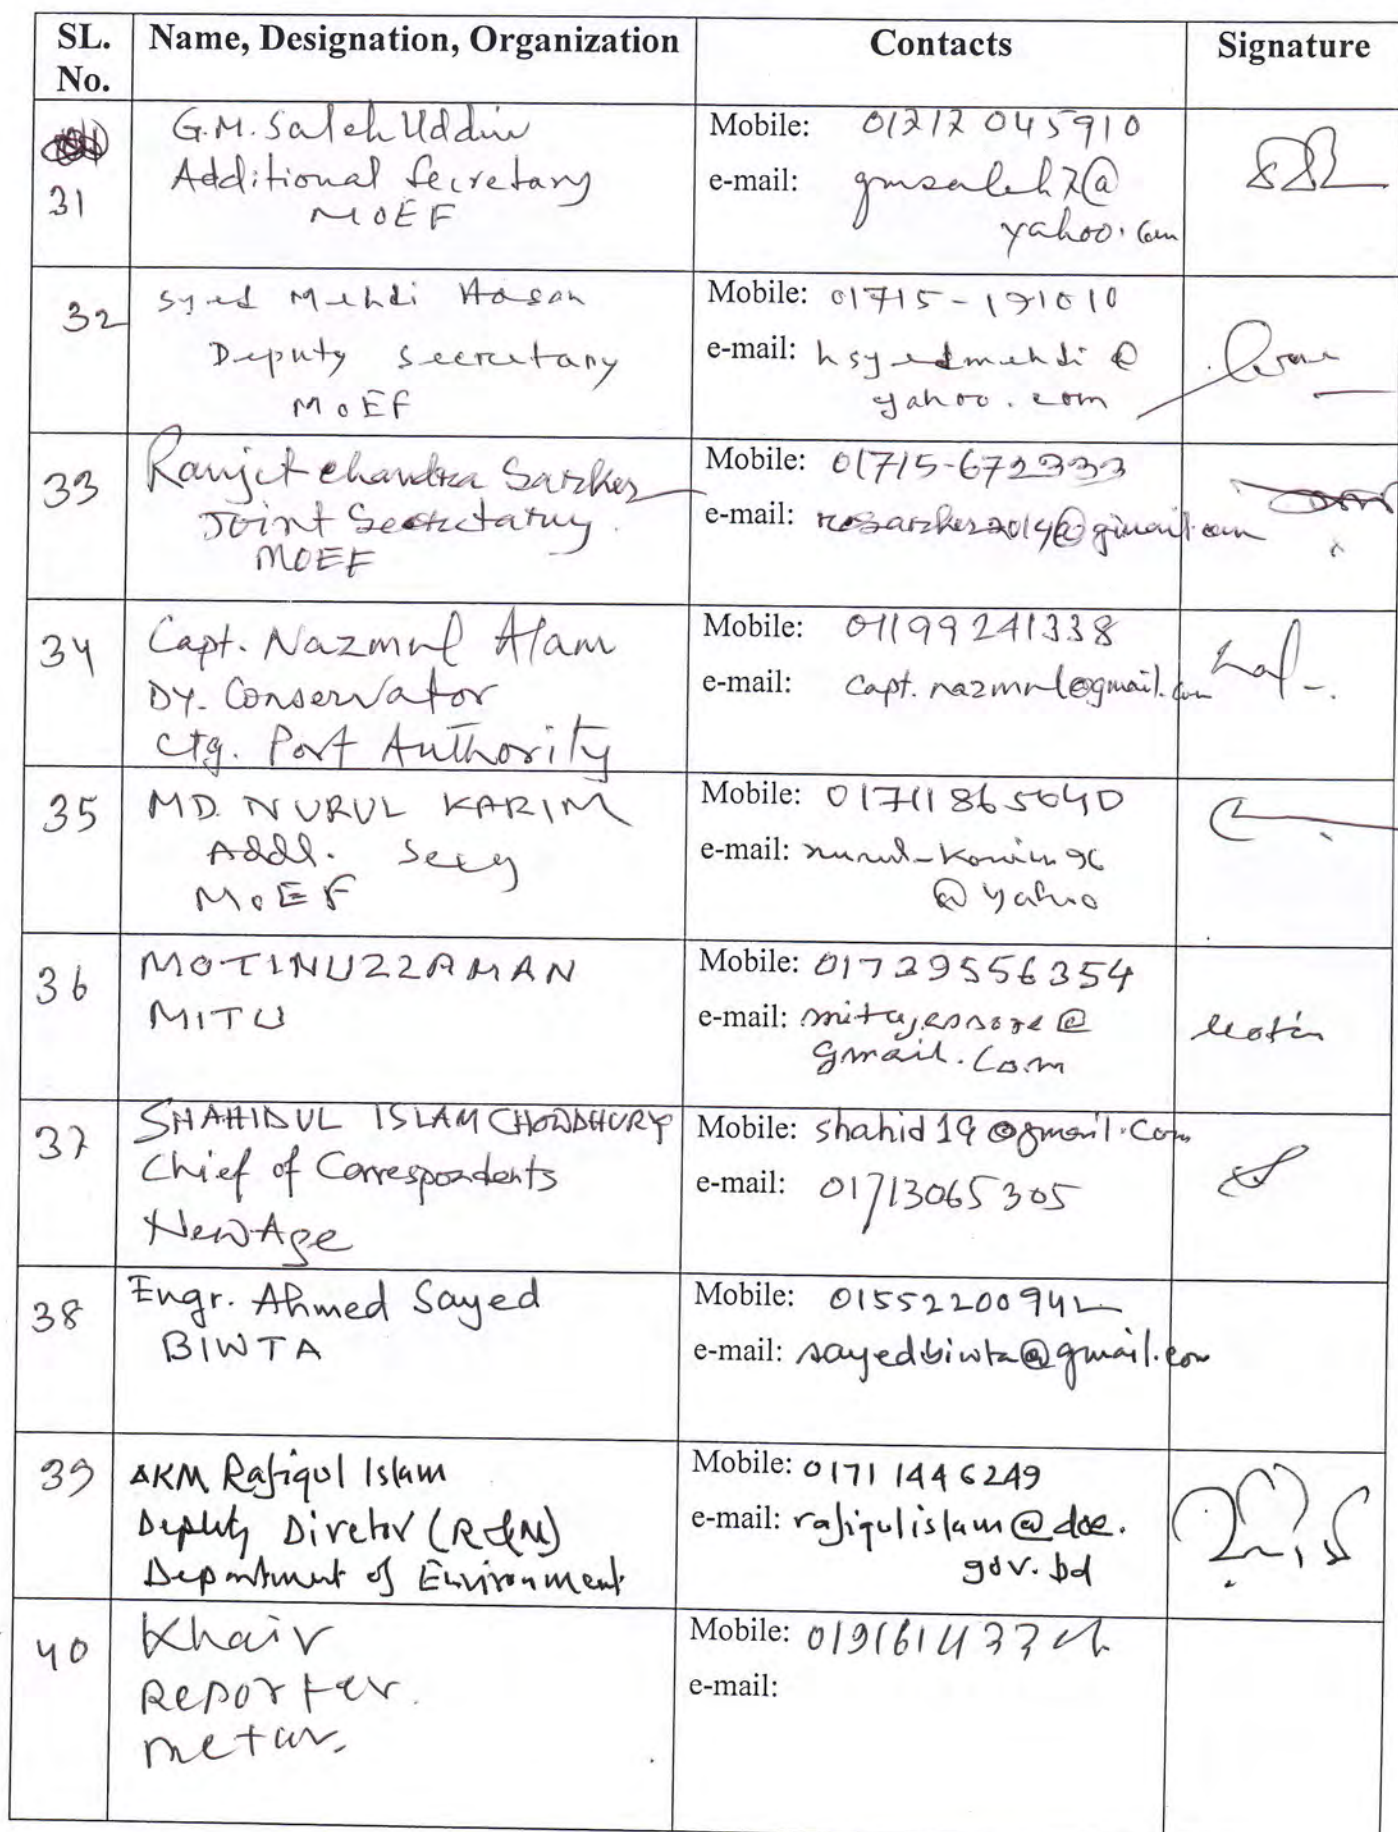 SL. No.
Name, Designation, Organization
Contacts
Signature
31
G.M. Saleh Uddin
Additional Secretary
MOEF
Mobile: 01717 045910
e-mail: gmsaleh7@
yahoo.com
32
Syed Mehdi Hasan
Deputy Secretary
MOEF
Mobile: 01715-191010
e-mail: hsyedmehdi@
yahoo.com
33
Ranjit Chandra Sarker
Joint Secretary
MOEF
Mobile: 01715-672333
e-mail: rcsarker2014@gmail.com
34
Capt. Nazmul Alam
DY. Conservator
Ctg. Port Authority
Mobile: 01199241338
e-mail: capt.nazmul@gmail.com
35
MD. NURUL KARIM
Addl. Secy
MOEF
Mobile: 01711865040
e-mail:
@yahoo
36
MOTINUZZAMAN
MITU
Mobile: 01729556354
e-mail: mitujessore@
gmail.com
37
SHAHIDUL ISLAM CHOWDHURY
Chief of Correspondents
New Age
Mobile: shahid19@gmail.com
e-mail: 01713065305
38
Engr. Ahmed Sayed
BIWTA
Mobile: 01552200942
e-mail: sayedbiwta@gmail.com
39
AKM Rafiqul Islam
Deputy Diretor (R&M)
Department of Environment
Mobile: 01711446249
e-mail: rafiqulislam@doe.
gov.bd
40
Khair
Reporter.
Mobile:
e-mail: